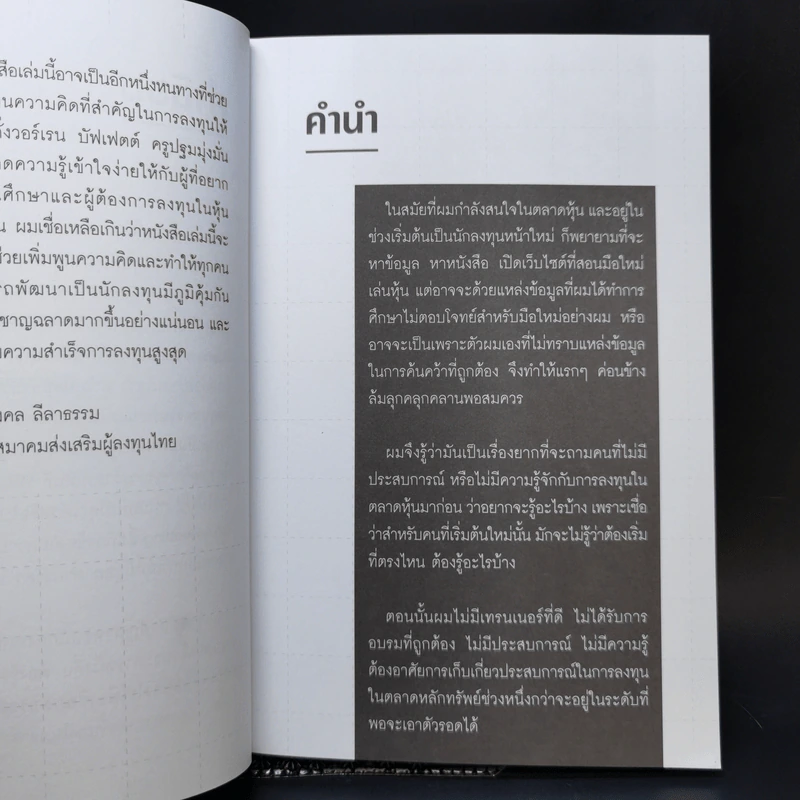 สือเล่มนี้อาจเป็นอีกหนึ่งหนทางที่ช่วย
นความคิดที่สำคัญในการลงทุนให้
วอร์เรน บัฟเฟตต์ ครูปฐมมุ่งมั่น
ดความรู้เข้าใจง่ายให้กับผู้ที่อยาก
ศึกษาและผู้ต้องการลงทุนในหุ้น
น ผมเชื่อเหลือเกินว่าหนังสือเล่มนี้จะ
ช่วยเพิ่มพูนความคิดและทำให้ทุกคน
รถพัฒนาเป็นนักลงทุนมีภูมิคุ้มกัน
ชาญฉลาดมากขึ้นอย่างแน่นอน และ
ความสำเร็จการลงทุนสูงสุด
งคล ลีลาธรรม
สมาคมส่งเสริมผู้ลงทุนไทย
คำนำ
ในสมัยที่ผมกำลังสนใจในตลาดหุ้น และอยู่ใน
ช่วงเริ่มต้นเป็นนักลงทุนหน้าใหม่ ก็พยายามที่จะ
หาข้อมูล หาหนังสือ เปิดเว็บไซต์ที่สอนมือใหม่
เล่นหุ้น แต่อาจจะด้วยแหล่งข้อมูลที่ผมได้ทำการ
ศึกษาไม่ตอบโจทย์สำหรับมือใหม่อย่างผม หรือ
อาจจะเป็นเพราะตัวผมเองที่ไม่ทราบแหล่งข้อมูล
ในการค้นคว้าที่ถูกต้อง จึงทำให้แรกๆ ค่อนข้าง
ล้มลุกคลุกคลานพอสมควร
ผมจึงรู้ว่ามันเป็นเรื่องยากที่จะถามคนที่ไม่มี
ประสบการณ์ หรือไม่มีความรู้จักกับการลงทุนใน
ตลาดหุ้นมาก่อน ว่าอยากจะรู้อะไรบ้าง เพราะเชื่อ
ว่าสำหรับคนที่เริ่มต้นใหม่นั้น มักจะไม่รู้ว่าต้องเริ่ม
ที่ตรงไหน ต้องรู้อะไรบ้าง
ตอนนั้นผมไม่มีเทรนเนอร์ที่ดี ไม่ได้รับการ
อบรมที่ถูกต้อง ไม่มีประสบการณ์ ไม่มีความรู้
ต้องอาศัยการเก็บเกี่ยวประสบการณ์ในการลงทุน
ในตลาดหลักทรัพย์ช่วงหนึ่งกว่าจะอยู่ในระดับที่
พอจะเอาตัวรอดได้